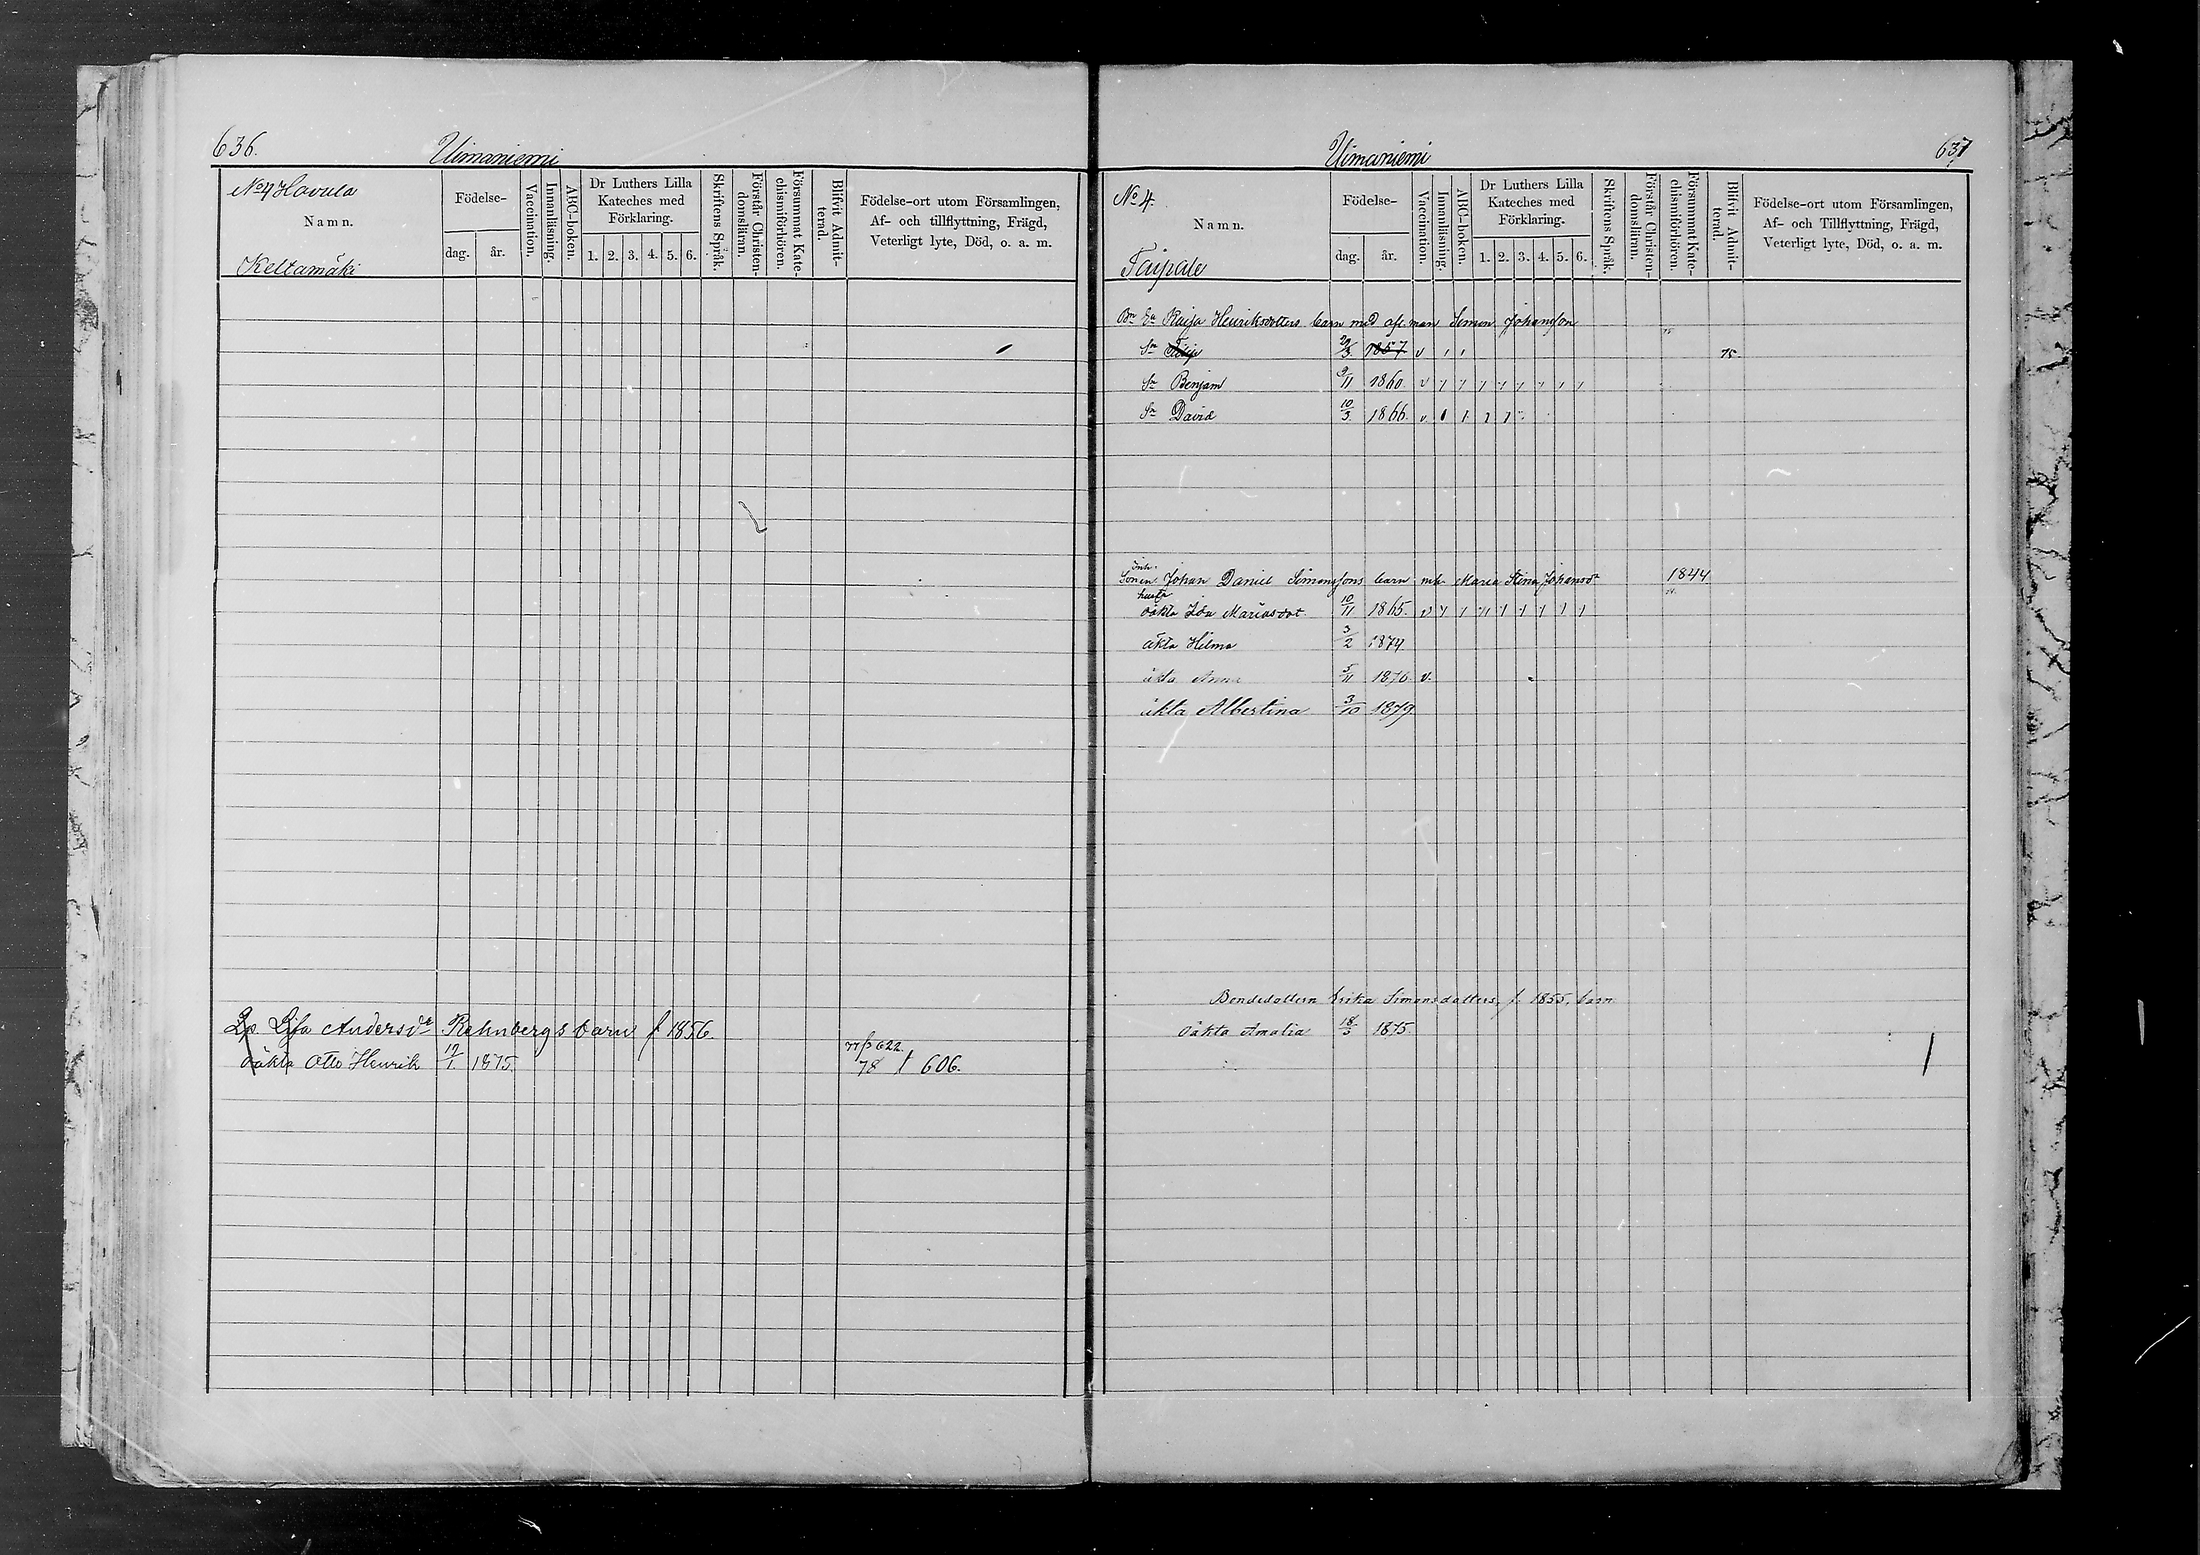 636.
Uimaniemi
No 4 Havula
Namn.
Keltamäki
Födelse-
dag.
år.
Vaccination.
Innanläsning.
ABC-boken.
Dr Luthers Lilla
Kateches med
Förklaring.
1. 2. 3. 4. 5. 6.
Skriftens Språk.
Förstår Christen-
domsläran.
Försummat Kate-
chismiförhören.
Blifvit Admit-
terad.
Födelse-ort utom Församlingen,
Af- och tillflyttning, Frägd,
Veterligt lyte, Död, o. a. m.
Lp. Lisa Andersdr Rahnbergs barn f 1856.
77/p 622.
oäkta Otto Henrik 17/1. 1875. 78 / 606.
Uimaniemi
637
No 4.
Namn.
Taipale
Födelse-
dag.
år.
Vaccination.
Innanläsning.
ABC-boken.
Dr Luthers Lilla
Kateches med
Förklaring.
1. 2. 3. 4. 5. 6.
Skriftens Språk.
Förstår Christen-
domsläran.
Försummat Kate-
chismiförhören.
Blifvit Admit-
terad.
Födelse-ort utom Församlingen,
Af- och Tillflyttning, Frägd,
Veterligt lyte, Död, o. a. m.
Bn Ea Kaisa Henriksdotters barn med afl. man Simon Johansson
Sn 1857 v 75
Sn Benjam 9/11 1860. v
Sn David 10/3. 1866. v.
Inh.
Sonen. Johan Daniel Simonssons barn m. h. Maria Stina Johansdr 1844
hustr
oäkta Ida Mariasdot. 10/11 1865. v
äkta Hilma 3/2 1874.
äkta Anna 5/11 1876. v.
äkta Albertina 3/10 1879
Bondedottern Erika Simonsdotters, f. 1855, barn
oäkta Amalia 18/3 1875.